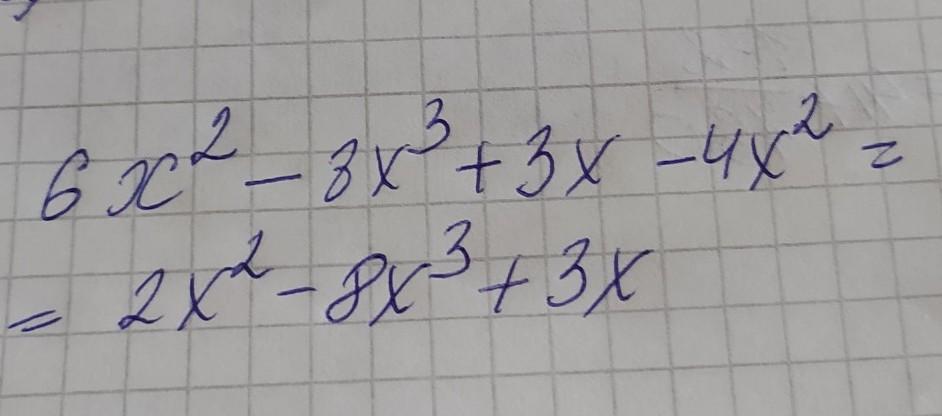 6x² - 8x³ + 3x - 4x² =
= 2x² - 8x³ + 3x